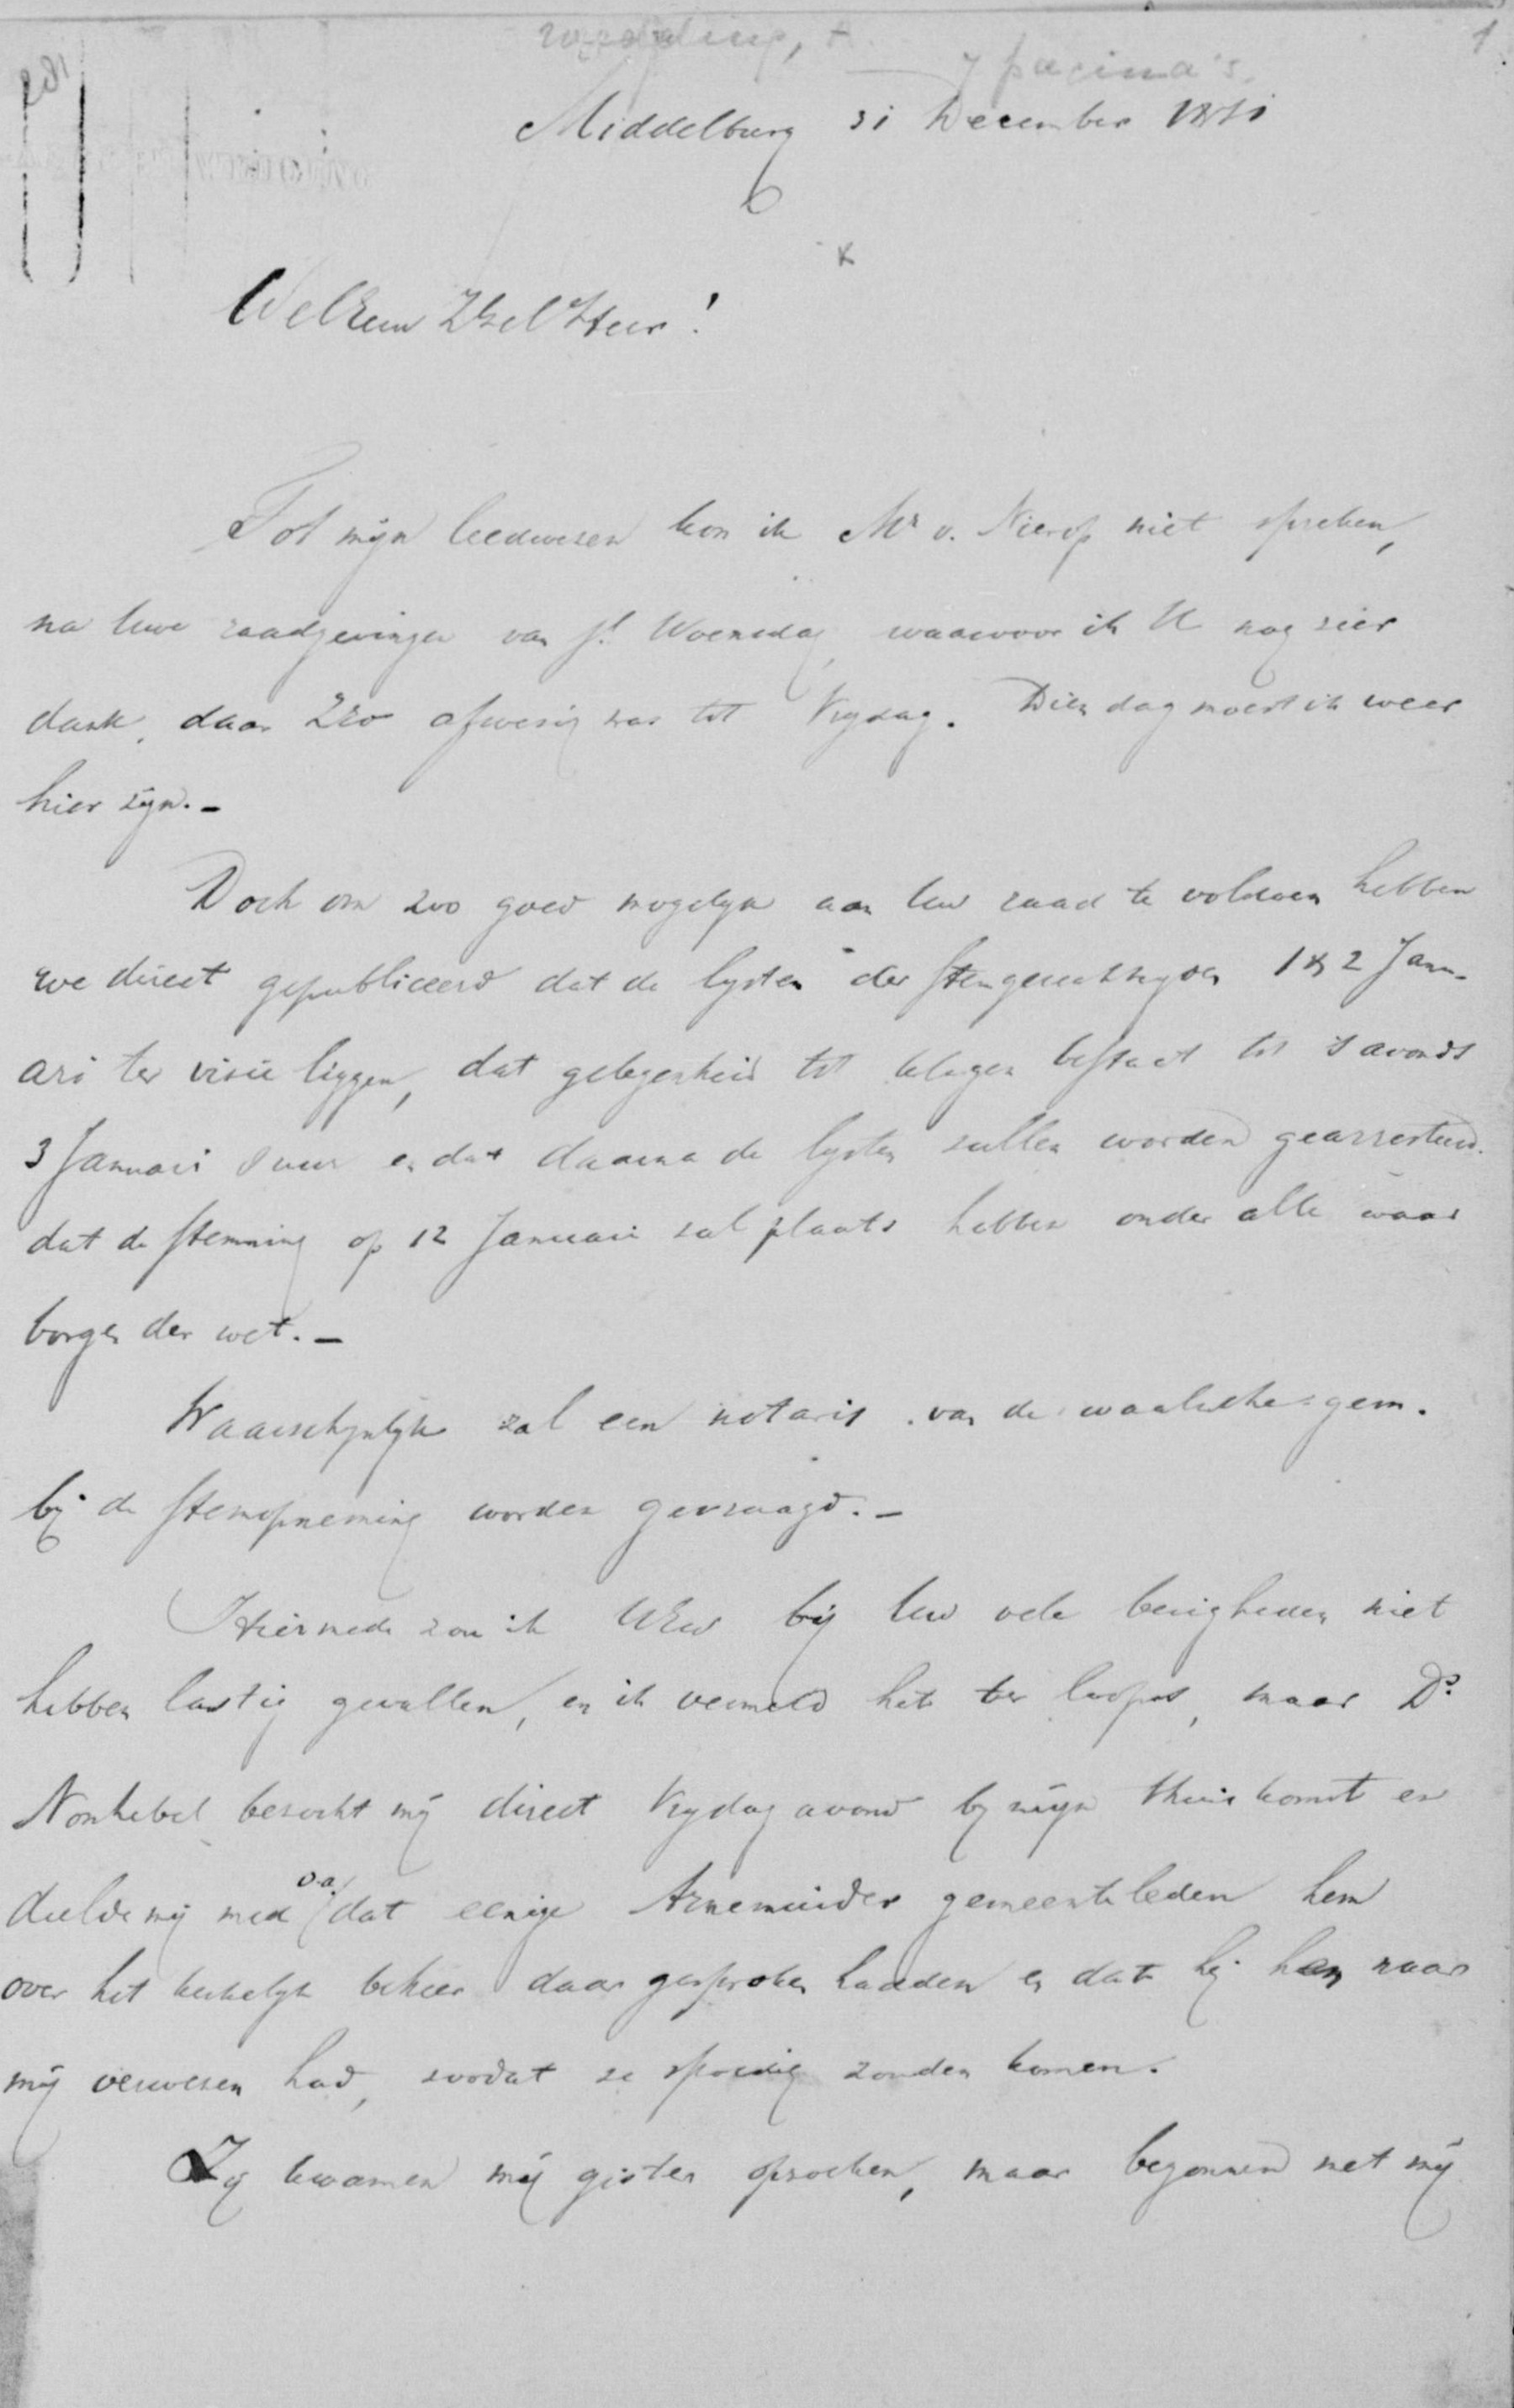 7 pagina's
1
Middelburg 31 December 1871
WelEerw ZGel Heer!
Tot mijn leedwezen kon ik Mr v. Nierop niet spreken,
na Uwe raadgevingen van jl. Woensdag, waarvoor ik U nog zeer
dank, daar ZEd afwezig was tot Vrydag. Dien dag moest ik weer
hier zijn. -
Doch om zoo goed mogelyk aan Uw raad te voldoen hebben
we direct gepubliceerd dat de lysten der stemgerechtigden 1 & 2 Janu-
ari ter visie liggen, dat gelegenheid tot klagen bestaat tot 's avonds
3 Januari 8 uur en dat daarna de lysten zullen worden gearresteerd.
dat de stemming op 12 Januari zal plaats hebben onder alle waar
borgen der wet. -
Waarschynlyk zal een notaris van de waalsche gem.
bij de stemopneming worden gevraagd. -
Hiermede zou ik UEw bij Uw vele bezigheden niet
hebben lastig gevallen, en ik vermeld het ter loops, maar Ds.
Nonhebel bezocht mij direct Vrydag avond by mijn thuiskomst en
deelde mij mede o.a. dat eenige Arnemuider gemeenteleden hem
over het kerkelyk beheer daar gesproken hadden en dat hij hen naar
mij verwezen had, zoodat ze spoedig zouden komen.
Zy kwamen mij gister opzoeken, maar begonnen met mij